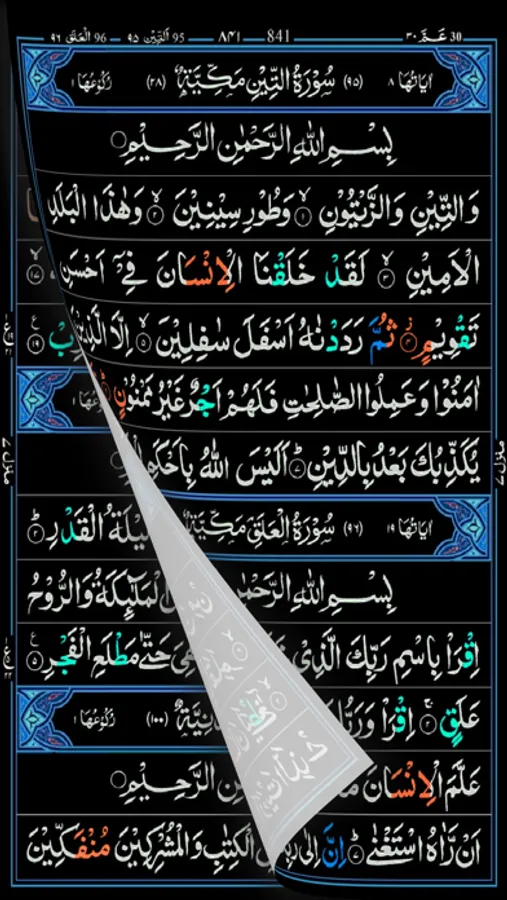 ٣٠ عَـمَّ 30 841 ٨٤١ 95 اَلتِّيْن ٩٥ 96 الْعَلَق ٩٦
اٰيَاتُهَا ٨ (٩٥) سُوْرَةُ التِّيْنِ مَكِّيَّةٌ (٢٨) رُكُوْعُهَا ١
بِسْمِ اللّٰهِ الرَّحْمٰنِ الرَّحِيْمِ
وَالتِّيْنِ وَالزَّيْتُوْنِ ۙ١ وَطُوْرِ سِيْنِيْنَ ۙ٢ وَهٰذَا الْبَلَدِ
الْاَمِيْنِ ۙ٣ لَقَدْ خَلَقْنَا الْاِنْسَانَ فِيْٓ اَحْسَنِ ۙ١٧
تَقْوِيْمٍ ٤ ثُمَّ رَدَدْنٰهُ اَسْفَلَ سٰفِلِيْنَ ۙ٥ اِلَّا الَّذِيْنَ ١٩
اٰمَنُوْا وَعَمِلُوا الصّٰلِحٰتِ فَلَهُمْ اَجْرٌ غَيْرُ مَمْنُوْنٍ
يُكَذِّبُكَ بَعْدُ بِالدِّيْنِ ٧ اَلَيْسَ اللّٰهُ بِاَحْكَمِ
اٰيَاتُهَا ١٩ (٩٦) سُوْرَةُ الْعَلَقِ مَكِّيَّةٌ لَيْلَةُ الْقَدْرِ ٢
بِسْمِ اللّٰهِ الرَّحْمٰنِ الْمَلٰٓئِكَةُ وَالرُّوْحُ
اِقْرَاْ بِاسْمِ رَبِّكَ الَّذِيْ هِيَ حَتّٰى مَطْلَعِ الْفَجْرِ ٥
عَلَقٍ ٢ اِقْرَاْ وَرَبُّكَ (١٠٠) رُكُوْعُهَا ١
عَلَّمَ الْاِنْسَانَ الرَّحِيْمِ
اَنْ رَّاٰهُ اسْتَغْنٰى ٧ اِنَّ اِلٰى الْكِتٰبِ وَالْمُشْرِكِيْنَ مُنْفَكِّيْنَ